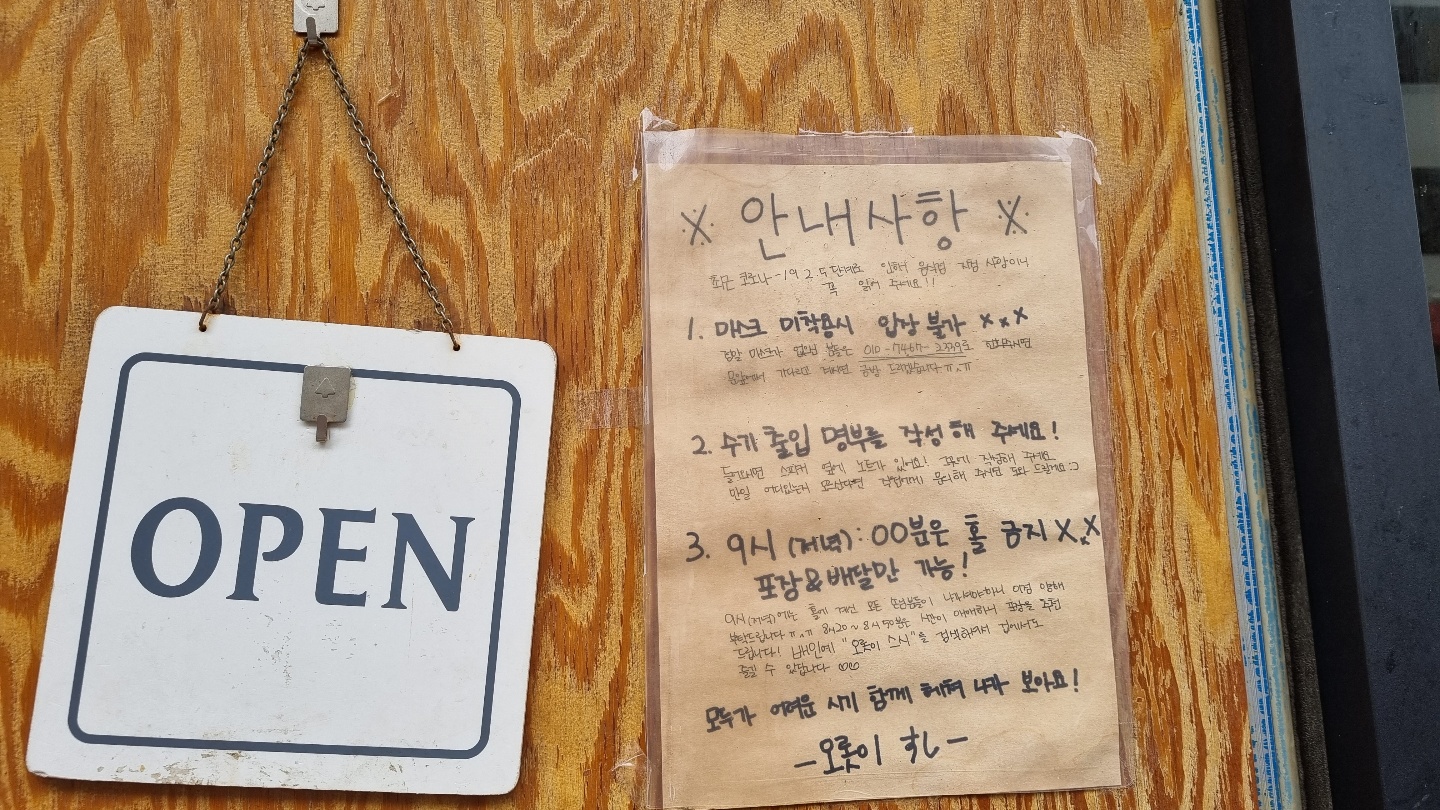 OPEN
※ 안내사항 ※
최근 코로나-19 2.5단계로 인해서 음식점 지침 사항이니
꼭 읽어 주세요!!
1. 마스크 미착용시 입장 불가 xxx
정말 마스크가 없으신 분들은 010-7467-2339로 전화주시면
문앞에서 기다리고 계시면 금방 드리겠습니다ㅠ.ㅠ
2. 수기 출입 명부를 작성해 주세요!
들어오시면 스피커 옆에 노트가 있어요! 그곳에 작성해 주세요
만일 어디있는지 모르신다면 직원에게 문의해 주시면 도와 드릴게요:)
3. 9시 (저녁): 00분은 홀 금지 XxX
포장&배달만 가능!
9시(저녁)에는 홀에 계신 모든 손님분들이 나가셔야하니 이점 양해
부탁드립니다ㅠ.ㅠ 8시20~8시50분은 시간이 애매하니 포장을 추천
드립니다! 배민에 "오롯이 스시"를 검색하셔서 집에서도
즐길 수 있답니다 ♡♡
모두가 어려운 시기 함께 헤쳐 나가 보아요!
-오롯이